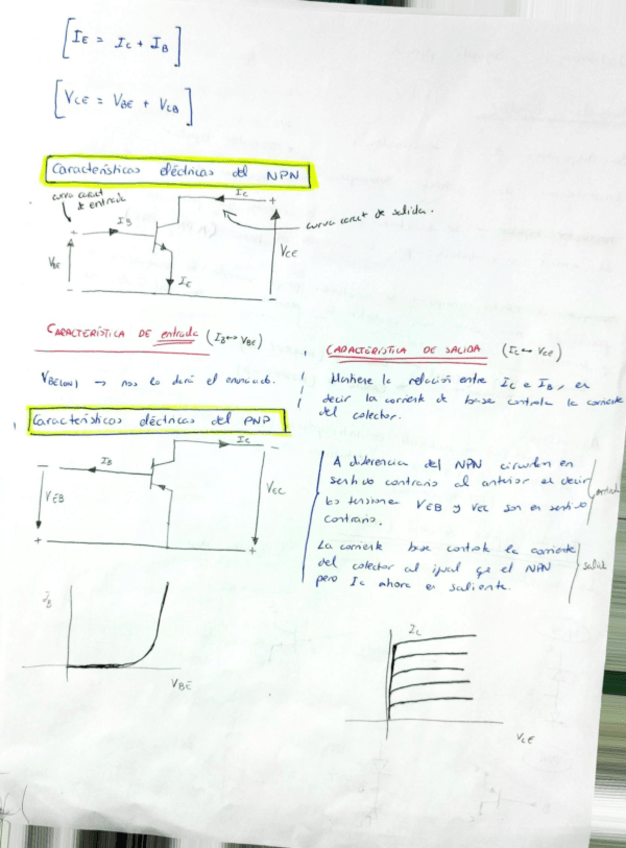 [IE = IC + IB]
[VCE = VBE + VCB]
Características eléctricas del NPN
curva caract
de entrada
IC
+
IB
curva caract de salida.
+
VBE
VCE
IE
-
-
CARACTERÍSTICA DE entrada (IB↔VBE)
CARACTERÍSTICA DE SALIDA (IC↔VCE)
VBE(on) → nos lo dará el enunciado.
Mantiene la relación entre IC e IB, es
decir la corriente de base controla la corriente
del colector.
Características eléctricas del PNP
IC
-
-
IB
VEB
VEC
+
+
A diferencia del NPN circulan en
sentido contrario al anterior es decir
las tensiones VEB y VEC son en sentido
contrario.
entrad
La corriente base controla la corriente
del colector al igual qe el NPN
pero IC ahora es saliente.
salida
IB
VBE
IC
VCE